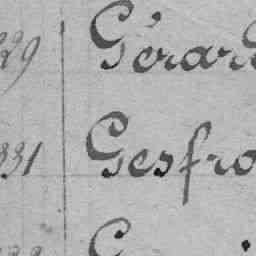 229 Gérard
331 Gesfro